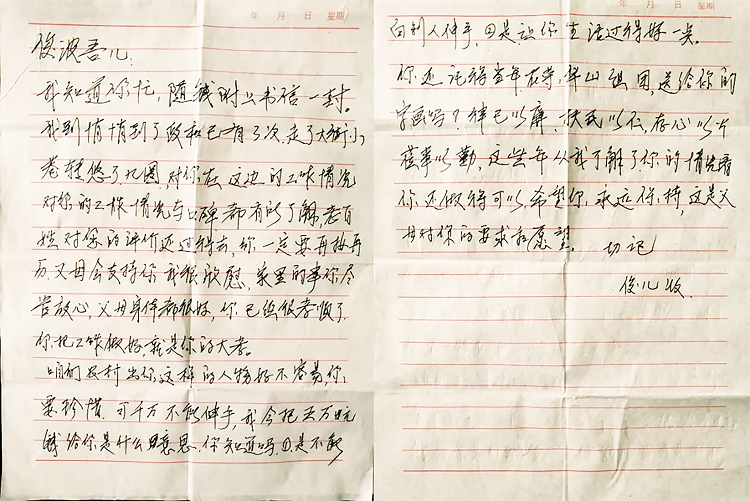 年 月 日 星期
俊波吾儿:
我知道你忙,随钱附上书信一封。
我到悄悄到了政和已有3次,走了大街小
巷转悠了几圈,对你在这边的工作情况
对你的工作情况与口碑都有所了解,老百
姓对你的评价还过得去,你一定要再接再
历,父母会支持你,我很欣慰,家里的事你尽
管放心,父母身体都很好,你已经很孝顺了,
你把工作做好就是你的大孝。
咱们农村出你这样的人物好不容易,你
要珍惜,可千万不能伸手,我今把五万元
钱给你是什么意思,你知道吗,①是不能
年 月 日 星期
向别人伸手,②是让你生活过得好一点。
你还记得当年在华山祖国,送给你的
字画吗?律已以廉,扶民以仁,存心以公
莅事以勤,这些年从我了解了你的情况看
你还做得可以,希望你永远保持,这是父
母对你的要求和愿望。切记
俊儿收.